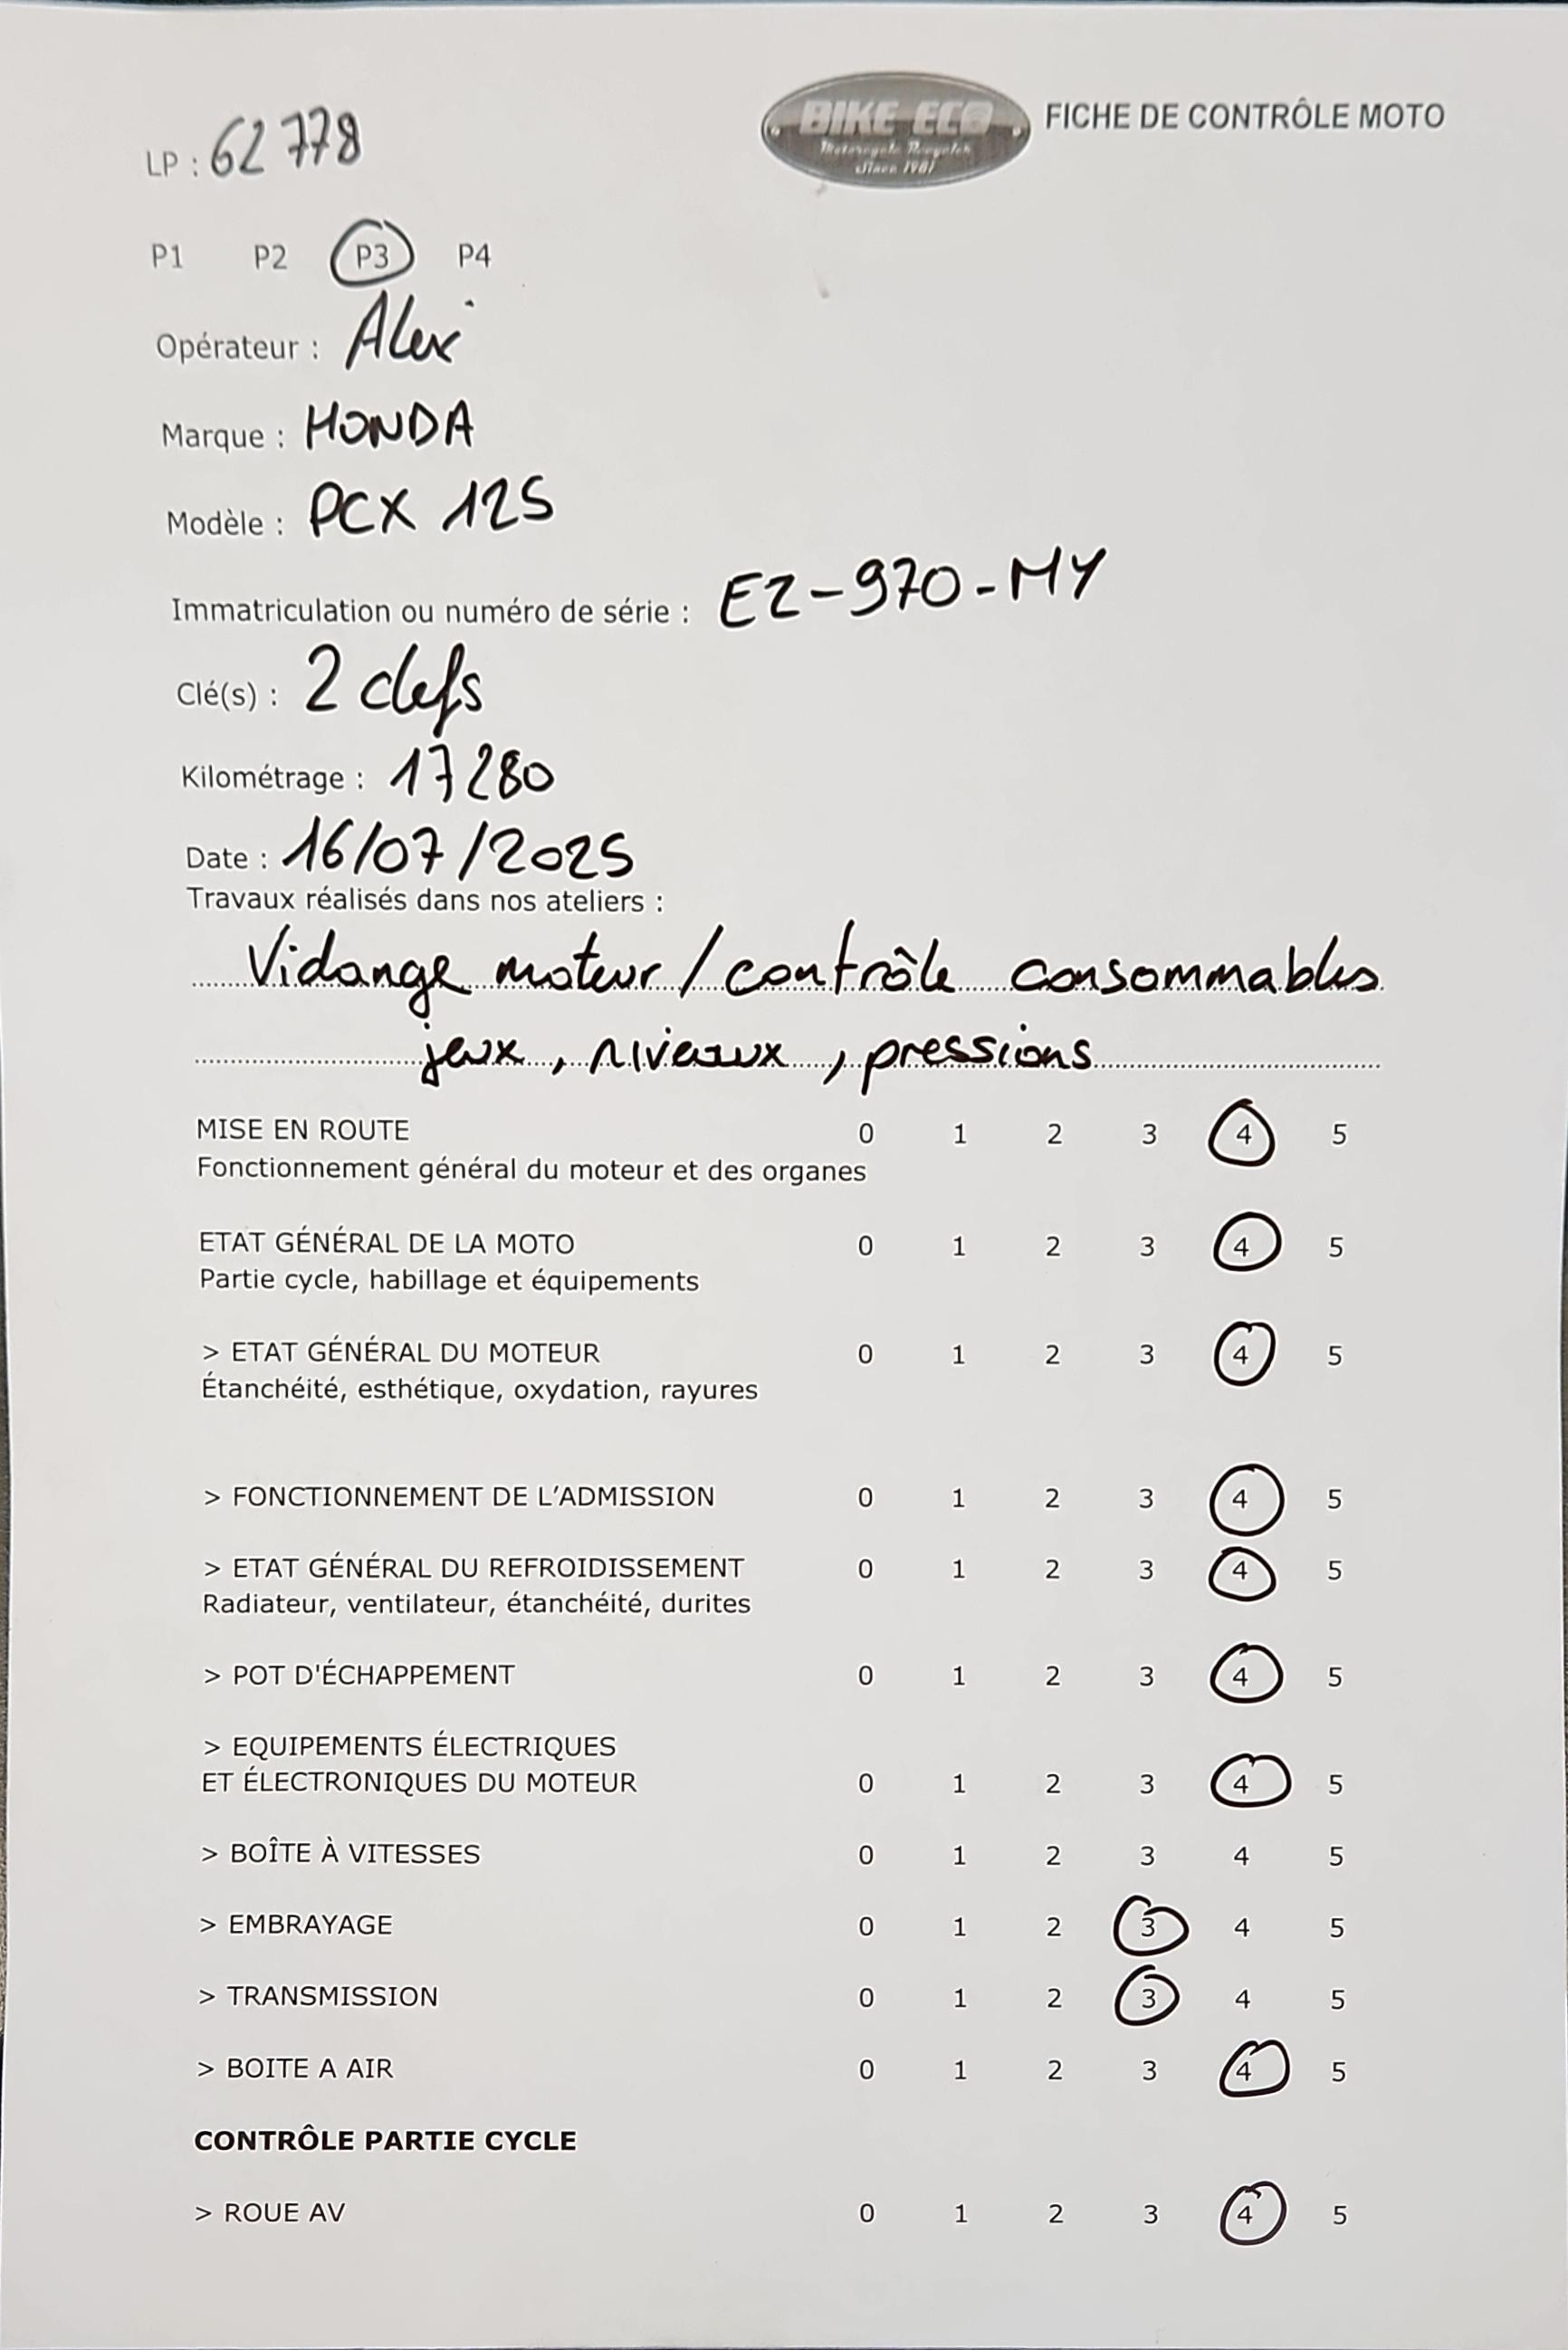 BIKE ECO
Motorcycle Recycler
Since 1981
FICHE DE CONTRÔLE MOTO
LP : 62778
P1 P2 P3 P4
Opérateur : Alexi
Marque : HONDA
Modèle : PCX 125
Immatriculation ou numéro de série : EZ-970-MY
Clé(s) : 2 clefs
Kilométrage : 17280
Date : 16/07/2025
Travaux réalisés dans nos ateliers :
Vidange moteur / contrôle consommables
jeux, niveaux, pressions
MISE EN ROUTE 0 1 2 3 4 5
Fonctionnement général du moteur et des organes
ETAT GÉNÉRAL DE LA MOTO 0 1 2 3 4 5
Partie cycle, habillage et équipements
> ETAT GÉNÉRAL DU MOTEUR 0 1 2 3 4 5
Étanchéité, esthétique, oxydation, rayures
> FONCTIONNEMENT DE L'ADMISSION 0 1 2 3 4 5
> ETAT GÉNÉRAL DU REFROIDISSEMENT 0 1 2 3 4 5
Radiateur, ventilateur, étanchéité, durites
> POT D'ÉCHAPPEMENT 0 1 2 3 4 5
> EQUIPEMENTS ÉLECTRIQUES
ET ÉLECTRONIQUES DU MOTEUR 0 1 2 3 4 5
> BOÎTE À VITESSES 0 1 2 3 4 5
> EMBRAYAGE 0 1 2 3 4 5
> TRANSMISSION 0 1 2 3 4 5
> BOITE A AIR 0 1 2 3 4 5
CONTRÔLE PARTIE CYCLE
> ROUE AV 0 1 2 3 4 5